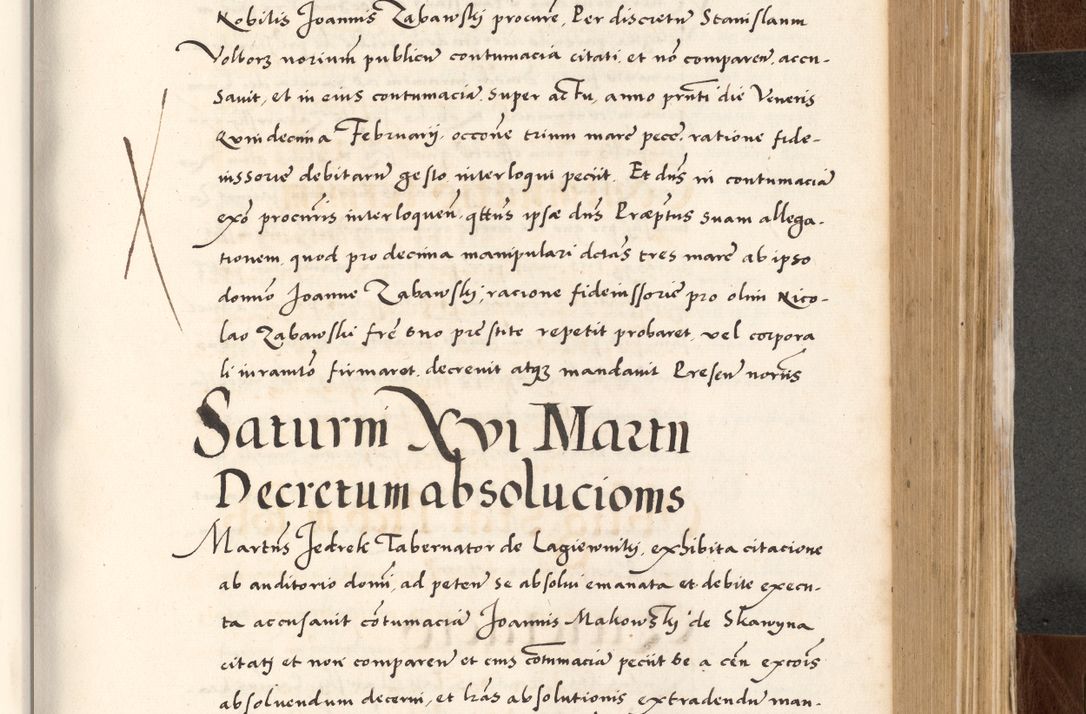 Nobilis Joannis Zabawski procure͂, Per discretu͂ Stanislaum
Volborz norium͂ publicu͂ contumacia citati, et no͂ comparen͂, accu-
savit, et in eius contumacia͂, super actu, anno pn͂ti die Veneris
Quindecima Februarij, occo͂ne trium marc͂ pecc͂, ratione fide-
iussorie͂ debitaru͂ gesto interloqui peciit. Et dn͂s in contumacia͂
exo͂ procur͂is interloquen͂, qtt͂us ipse dn͂s Præp͂tus suam allega-
tionem, quod pro decima manipulari dcta͂s tres marc͂ ab ipso
domi͂o Joanne Zabawski, racione fideiussorie͂ pro olim Nico-
lao Zabawski fr͂e suo prestite repetit probaret, vel corpora
li iuram͂to firmaret, decrevit atqz mandavit Presen͂ norijs
Saturni XVI Martii
Decretum absolucionis
Martin͂s Jedrek Tabernator de Lagiewniki, exhibita citacione
ab auditorio domi͂, ad peten͂ se absolvi emanata et debite execu-
ta accusavit co͂tumacia͂ Joannis Makowski de Skawyna
citati et non comparen͂ et eius co͂tumacia͂ peciit se a cen͂ exco͂is
absolvendum decerni, et lr͂as absolutionis extradendu͂ man-